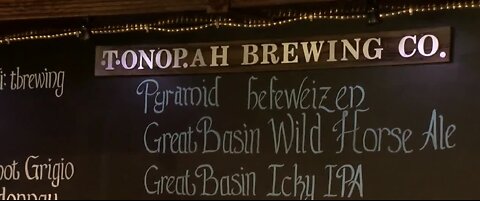 TONOPAH BREWING CO.
i: tbrewing
Pyramid hefeweizen
Great Basin Wild Horse Ale
ot Grigio
Great Basin Icky IPA